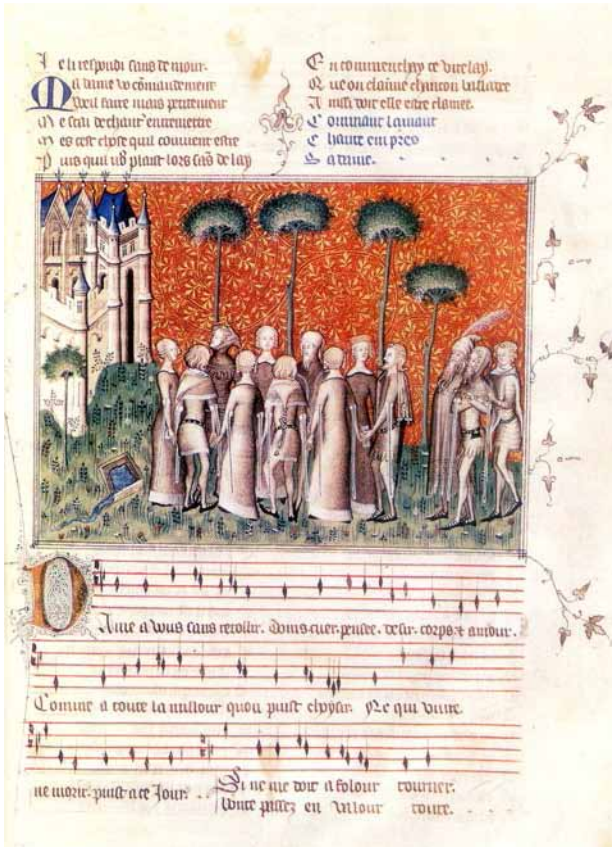 Je li respondi sans demour.
Ma dame vo cõmandement
Vueil faire mais petitement
Me scai de chanter entremettre
Mes cest chose quil couvient estre
Puis quil vo9 plaist lors sãs delay
En commenchay ce virelay.
Que on claime chancon balladee
Ainssi doit elle estre clamee.
Comment lamant
Chante empres
Sa dame.
Dame a vous sans retollir. Doins cuer. pensee. desir. corps. et amour.
Comme a toute la millour quon puist choysir. Ne qui vivre
ne morir. puist a ce Jour.
Si ne me doit a folour tourner.
vous passez en valour toute.